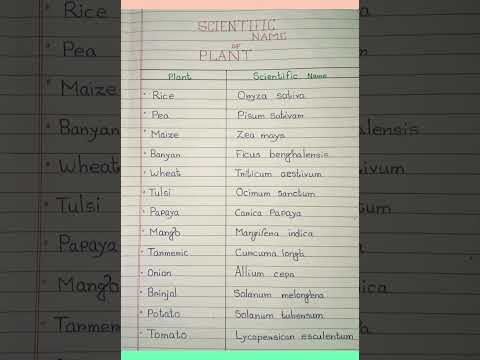 SCIENTIFIC
NAME
OF
PLANT
Plant Scientific Name
Rice Oryza sativa
Pea Pisum sativam
Maize Zea mays
Banyan Ficus benghalensis
Wheat Triticum aestivum
Tulsi Ocimum sanctum
Papaya Carica Papaya
Mango Mangifera indica
Tarmeric Curcuma longa
Onion Allium cepa
Brinjal Solanum melongena
Potato Solanum tubersum
Tomato Lycopersican esculentum